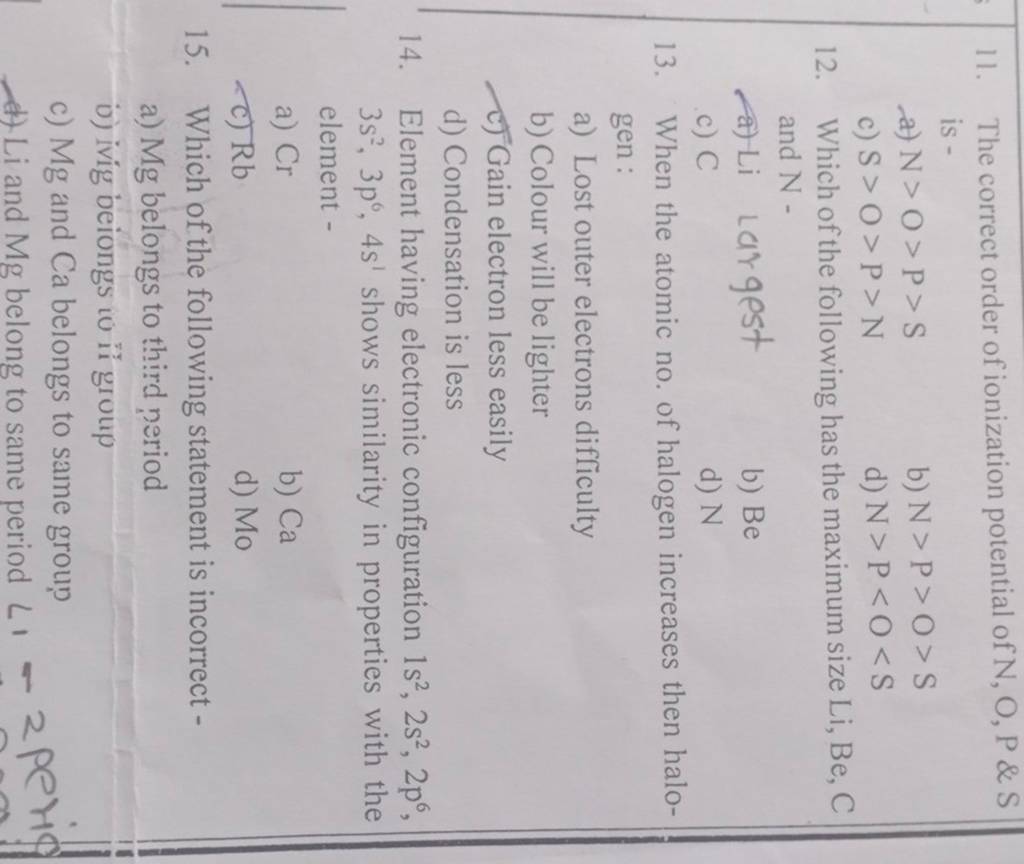 11. The correct order of ionization potential of N, O, P & S
is -
a) N > O > P > S b) N > P > O > S
c) S > O > P > N d) N > P < O < S
12. Which of the following has the maximum size Li, Be, C
and N -
a) Li Largest b) Be
c) C d) N
13. When the atomic no. of halogen increases then halo-
gen :
a) Lost outer electrons difficulty
b) Colour will be lighter
c) Gain electron less easily
d) Condensation is less
14. Element having electronic configuration 1s², 2s², 2p⁶,
3s², 3p⁶, 4s¹ shows similarity in properties with the
element -
a) Cr b) Ca
c) Rb d) Mo
15. Which of the following statement is incorrect -
a) Mg belongs to third period
b) Mg belongs to II group
c) Mg and Ca belongs to same group
d) Li and Mg belong to same period Li - 2 perio